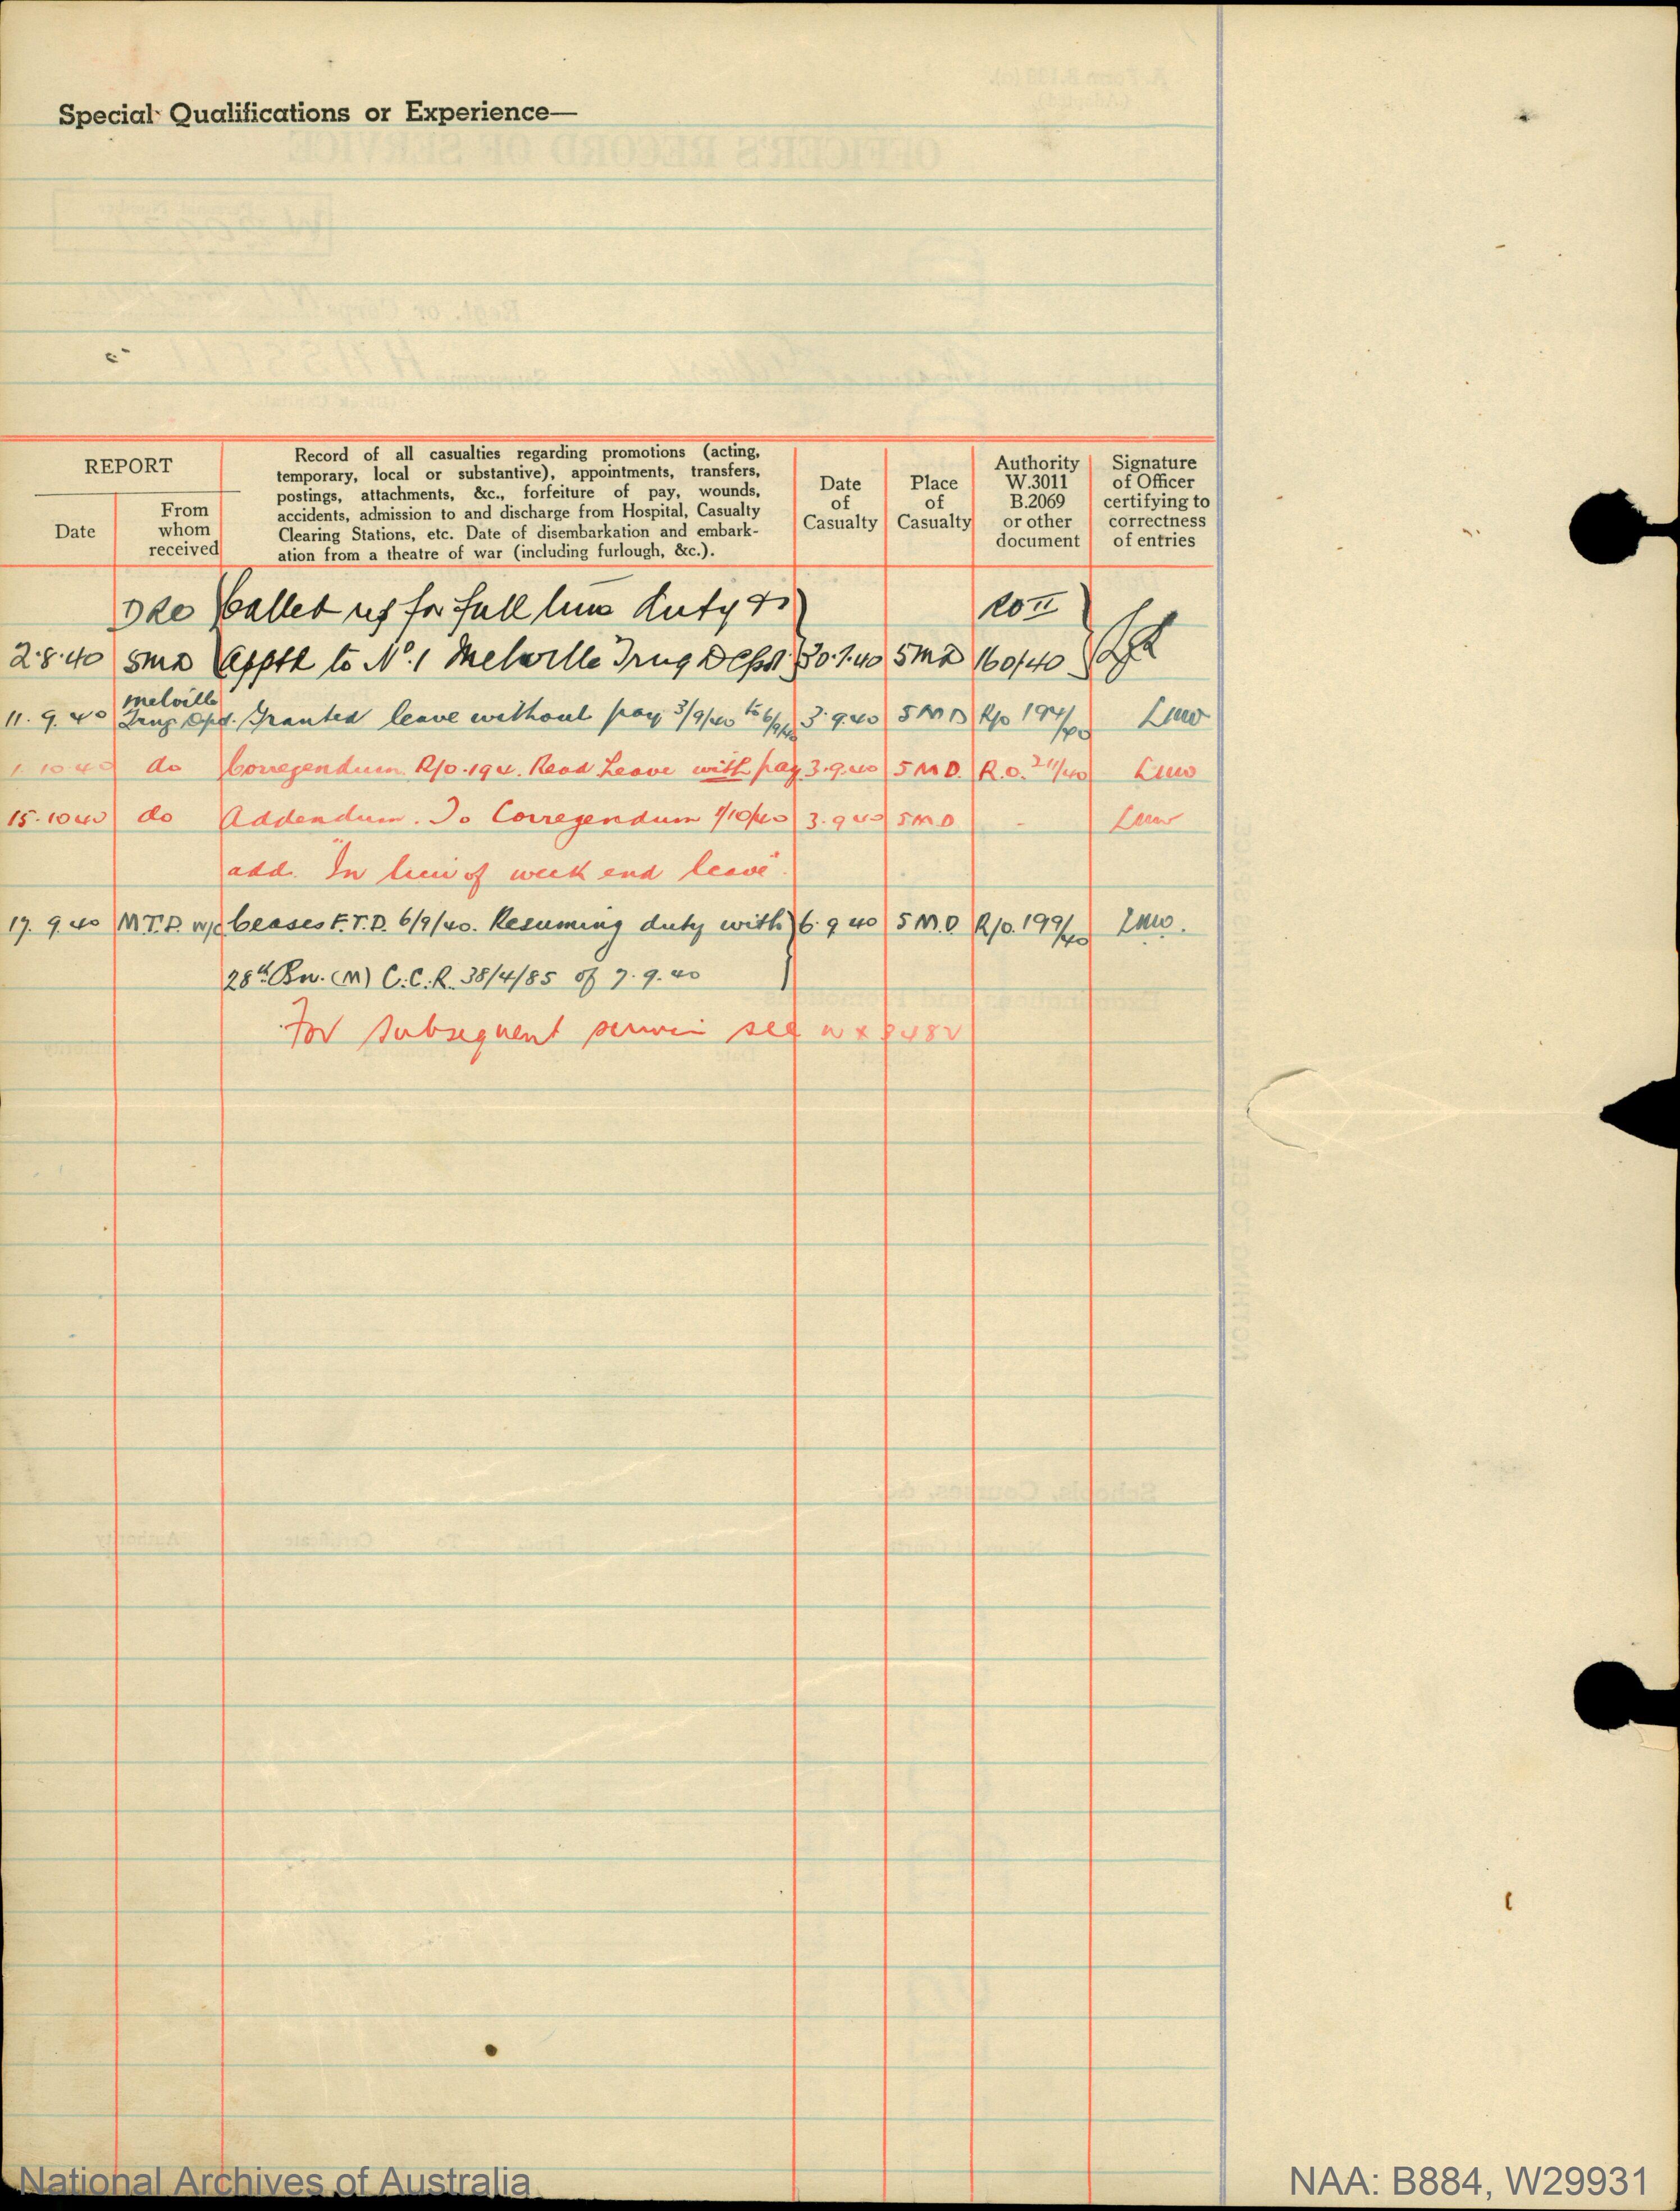 Special Qualifications or Experience—
REPORT
Date
From whom received
Record of all casualties regarding promotions (acting,
temporary, local or substantive), appointments, transfers,
postings, attachments, &c., forfeiture of pay, wounds,
accidents, admission to and discharge from Hospital, Casualty
Clearing Stations, etc. Date of disembarkation and embark-
ation from a theatre of war (including furlough, &c.).
Date of Casualty
Place of Casualty
Authority W.3011 B.2069 or other document
Signature of Officer certifying to correctness of entries
DRO Called up for full time duty & RO II
2.8.40 5MD Apptd to No. 1 Melville Trng Depot 30.7.40 5MD 160/40
Melville
11.9.40 Trng Dpt. Granted leave without pay 3/9/40 to 6/9/40 3.9.40 5MD R/o 194/40
1.10.40 do Corregendum R/o.194. Read Leave with pay 3.9.40 5MD. R.O. 211/40
15.10.40 do Addendum. To Corregendum 1/10/40 3.9.40 5MD -
add. "In lieu of week end leave".
17.9.40 M.T.D. Ceases F.T.D. 6/9/40. Resuming duty with 6.9.40 5M.D R/o.199/40
28th Bn. (M) C.C.R. 38/4/85 of 7.9.40
For subsequent service see WX 3482
National Archives of Australia
NAA: B884, W29931